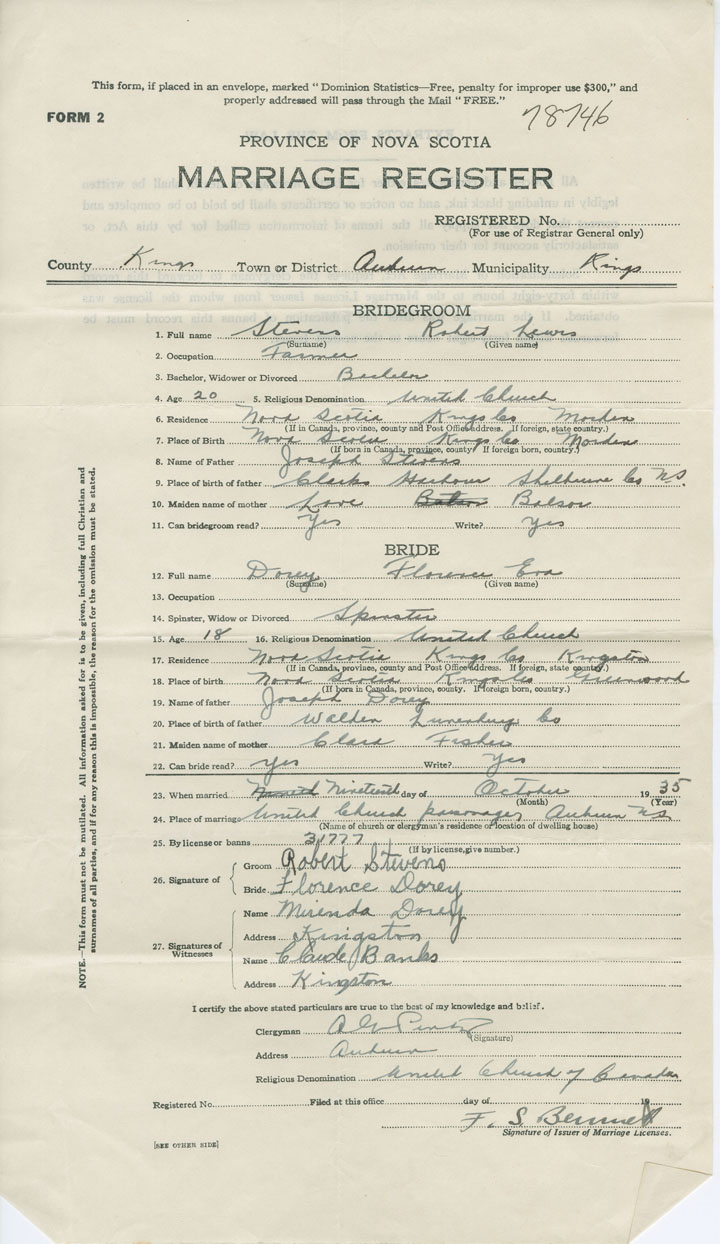 This form, if placed in an envelope, marked "Dominion Statistics—Free, penalty for improper use $300," and
properly addressed will pass through the Mail "FREE."
FORM 2
78746
PROVINCE OF NOVA SCOTIA
MARRIAGE REGISTER
REGISTERED No.
(For use of Registrar General only)
County Kings Town or District Auburn Municipality Kings
BRIDEGROOM
1. Full name Stevens Robert Lewis
(Surname) (Given name)
2. Occupation Farmer
3. Bachelor, Widower or Divorced Bachelor
4. Age 20 5. Religious Denomination United Church
6. Residence Nova Scotia Kings Co Morden
(If in Canada, province, county and Post Office Address. If foreign, state country.)
7. Place of Birth Nova Scotia Kings Co Morden
(If born in Canada, province, county. If foreign born, country.)
8. Name of Father Joseph Stevens
9. Place of birth of father Clarks Harbour Shelburne Co NS.
10. Maiden name of mother Balsor
11. Can bridegroom read? Yes Write? Yes
BRIDE
12. Full name Dorey Florence Eva
(Surname) (Given name)
13. Occupation
14. Spinster, Widow or Divorced Spinster
15. Age 18 16. Religious Denomination United Church
17. Residence Nova Scotia Kings Co Kingston
(If in Canada, province, county and Post Office Address. If foreign, state country.)
18. Place of birth Nova Scotia Kings Co Greenwood
(If born in Canada, province, county. If foreign born, country.)
19. Name of father Joseph Dorey
20. Place of birth of father Lunenburg Co
21. Maiden name of mother Clara Fisher
22. Can bride read? yes Write? Yes
23. When married Nineteenth day of October 1935
(Month) (Year)
24. Place of marriage United Church parsonage Auburn NS
(Name of church or clergyman's residence or location of dwelling house)
25. By license or banns 31777
(If by license, give number.)
26. Signature of
Groom Robert Stevens
Bride Florence Dorey
27. Signatures of Witnesses
Name Mirenda Dorey
Address Kingston
Name Claude Banks
Address Kingston
I certify the above stated particulars are true to the best of my knowledge and belief.
Clergyman
(Signature)
Address Auburn
Religious Denomination United Church of Canada
Registered No. Filed at this office day of 19
F. S. Bennett
Signature of Issuer of Marriage Licenses.
[SEE OTHER SIDE]
NOTE.—This form must not be mutilated. All information asked for is to be given, including full Christian and
surnames of all parties, and if for any reason this is impossible, the reason for the omission must be stated.